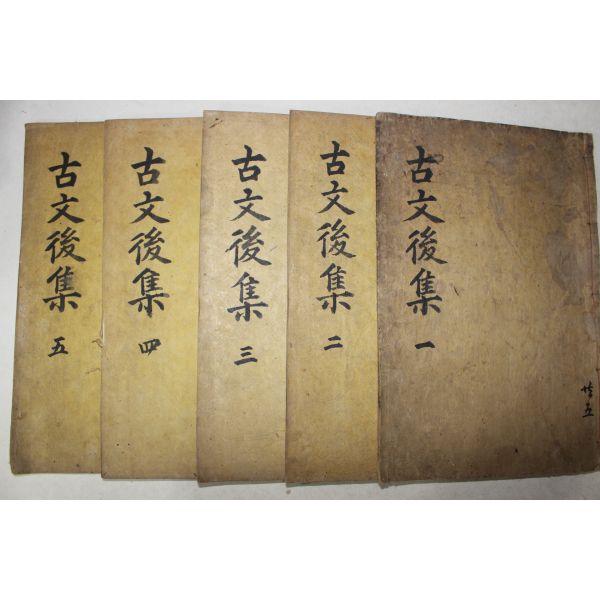 古文後集 一
共五
古文後集 二
古文後集 三
古文後集 四
古文後集 五